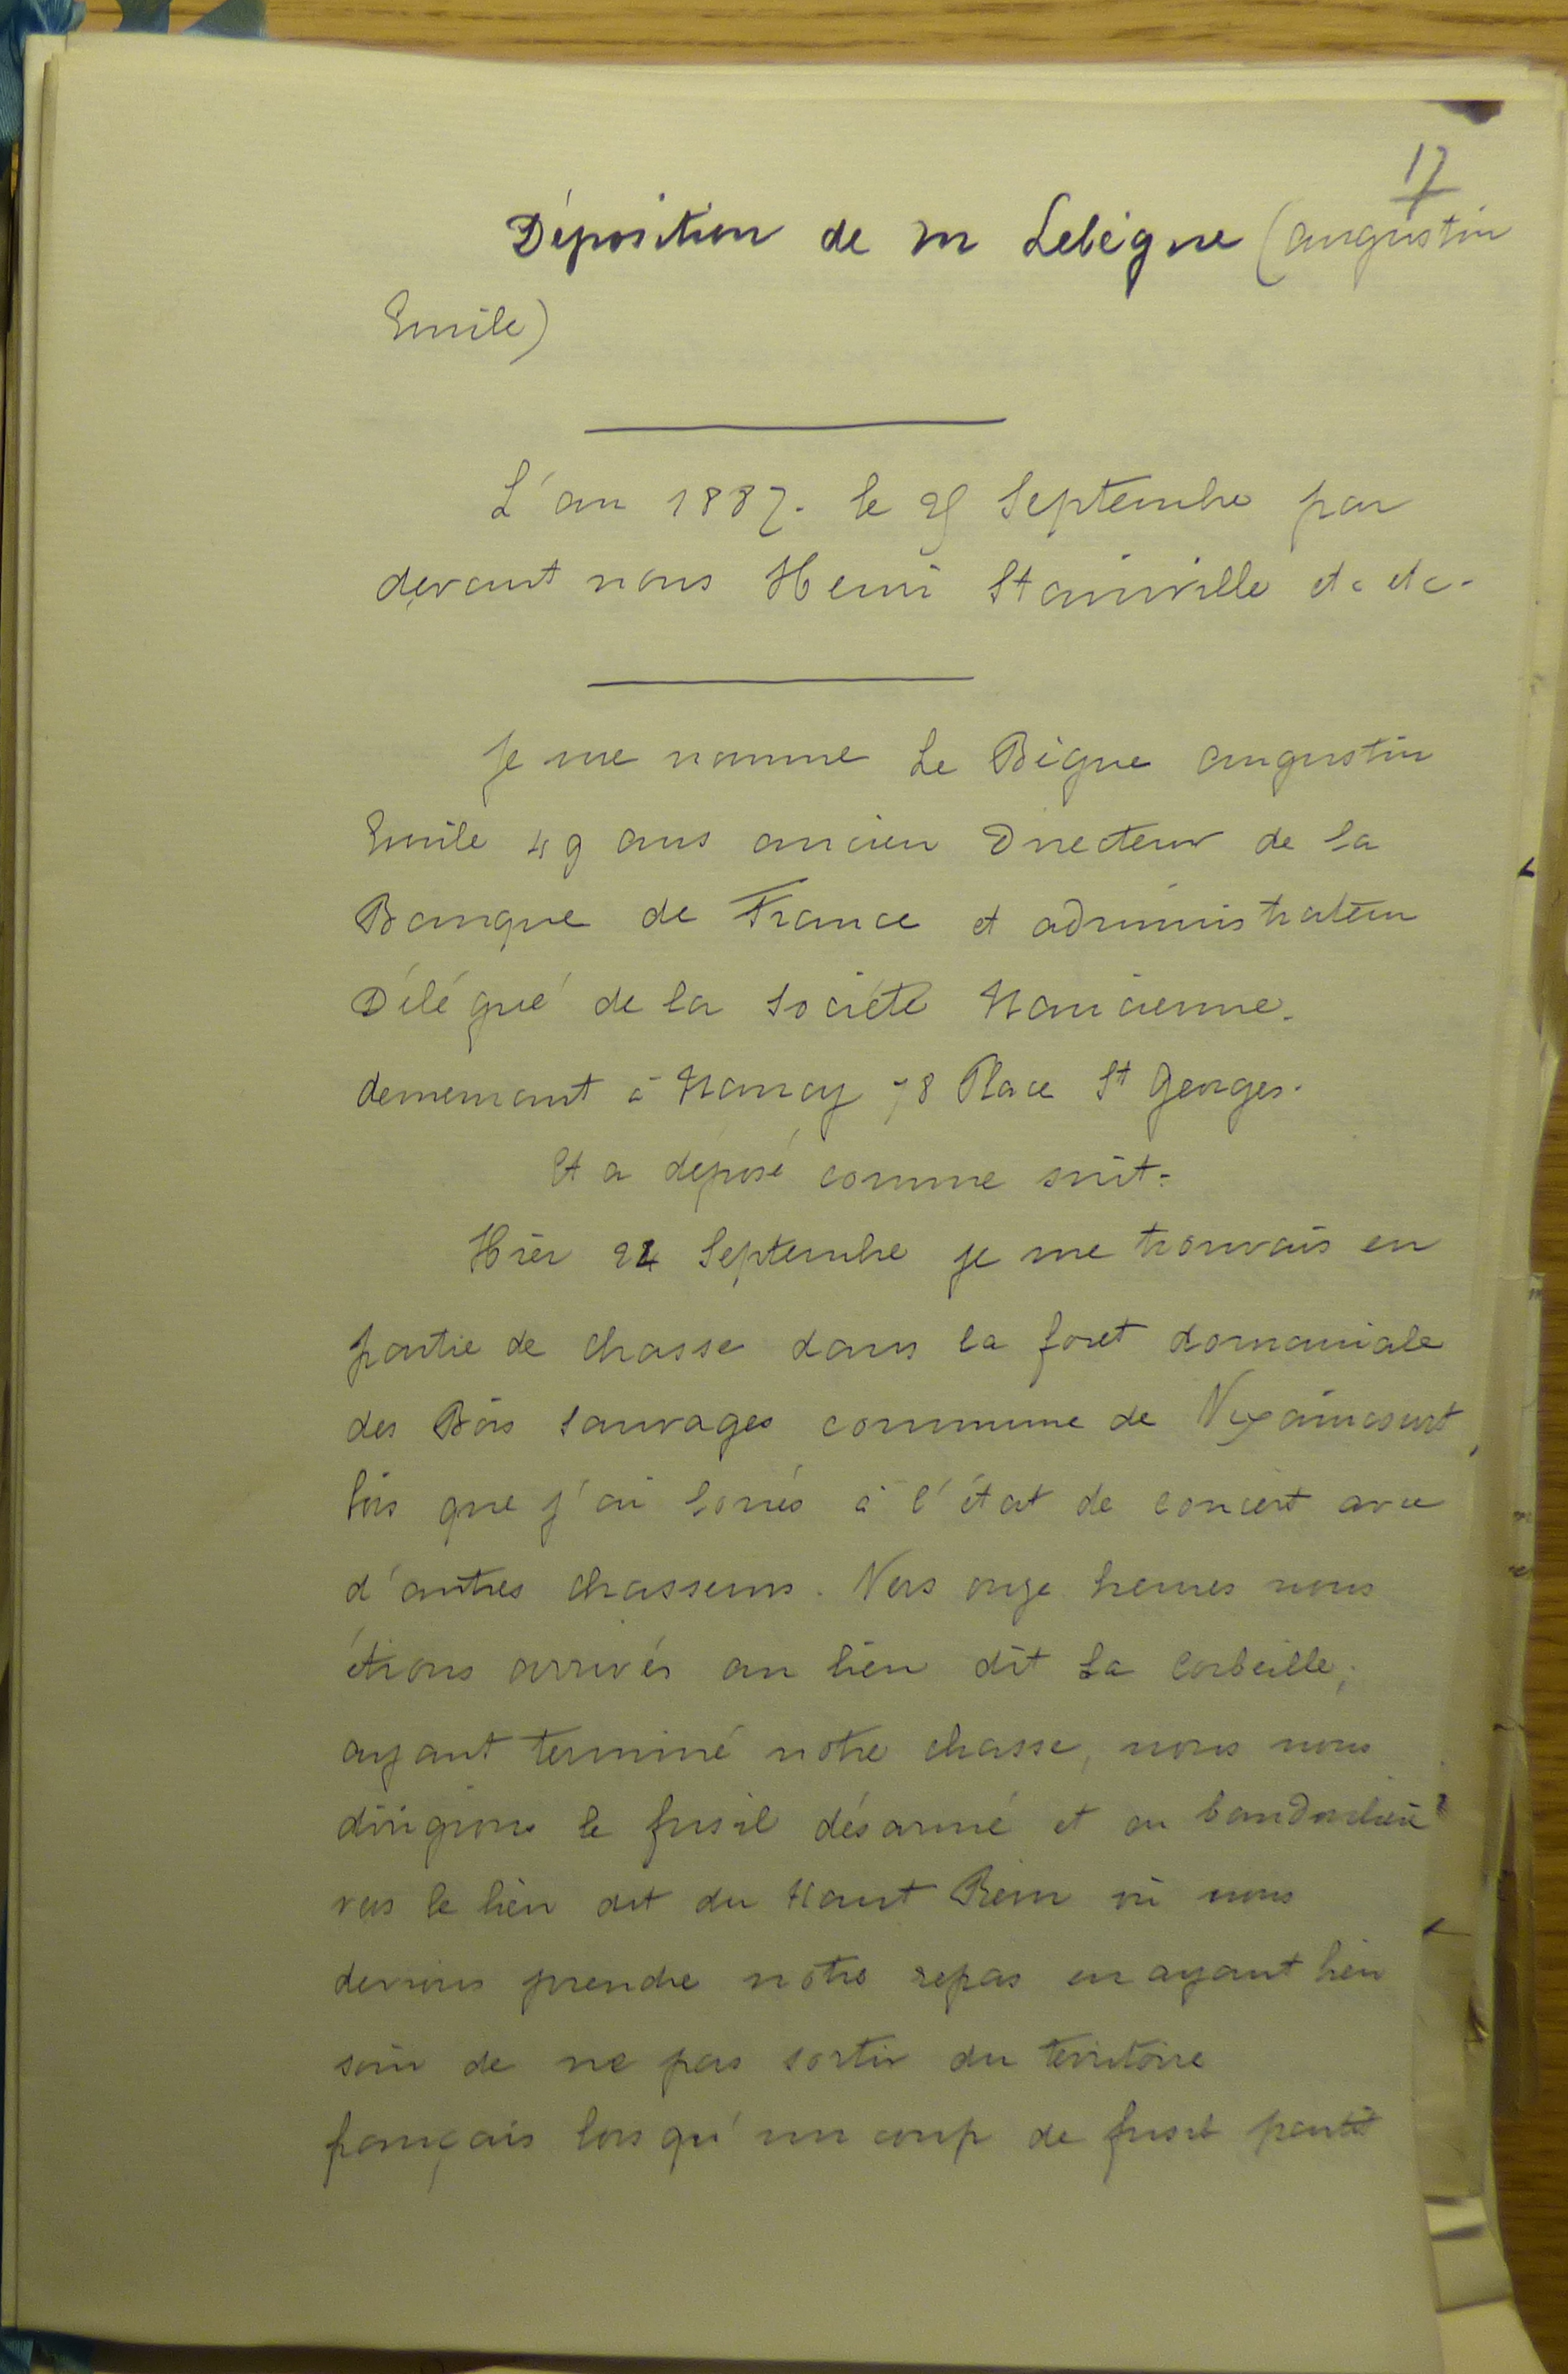 17
Déposition de M Lebègue (Augustin
Emile)
L'an 1887. le 25 Septembre par
devant nous Henri Stainville etc etc.
Je me nomme Le Bègue Augustin
Emile 49 ans ancien Directeur de la
Banque de France et administrateur
Délégué de la Société Nancienne.
demeurant à Nancy 78 Place St Georges.
Et a déposé comme suit:
Hier 24 Septembre je me trouvais en
partie de chasse dans la foret domaniale
des Bois Sauvages commune de Vexaincourt,
bois que j'ai loués à l'état de concert avec
d'autres chasseurs. Vers onze heures nous
étions arrivés au lieu dit La Corbeille;
ayant terminé notre chasse, nous nous
dirigions le fusil désarmé et en bandoulière
vers le lieu dit du Haut où nous
devions prendre notre repas en ayant bien
soin de ne pas sortir du territoire
français lorsqu'un coup de fusil partit